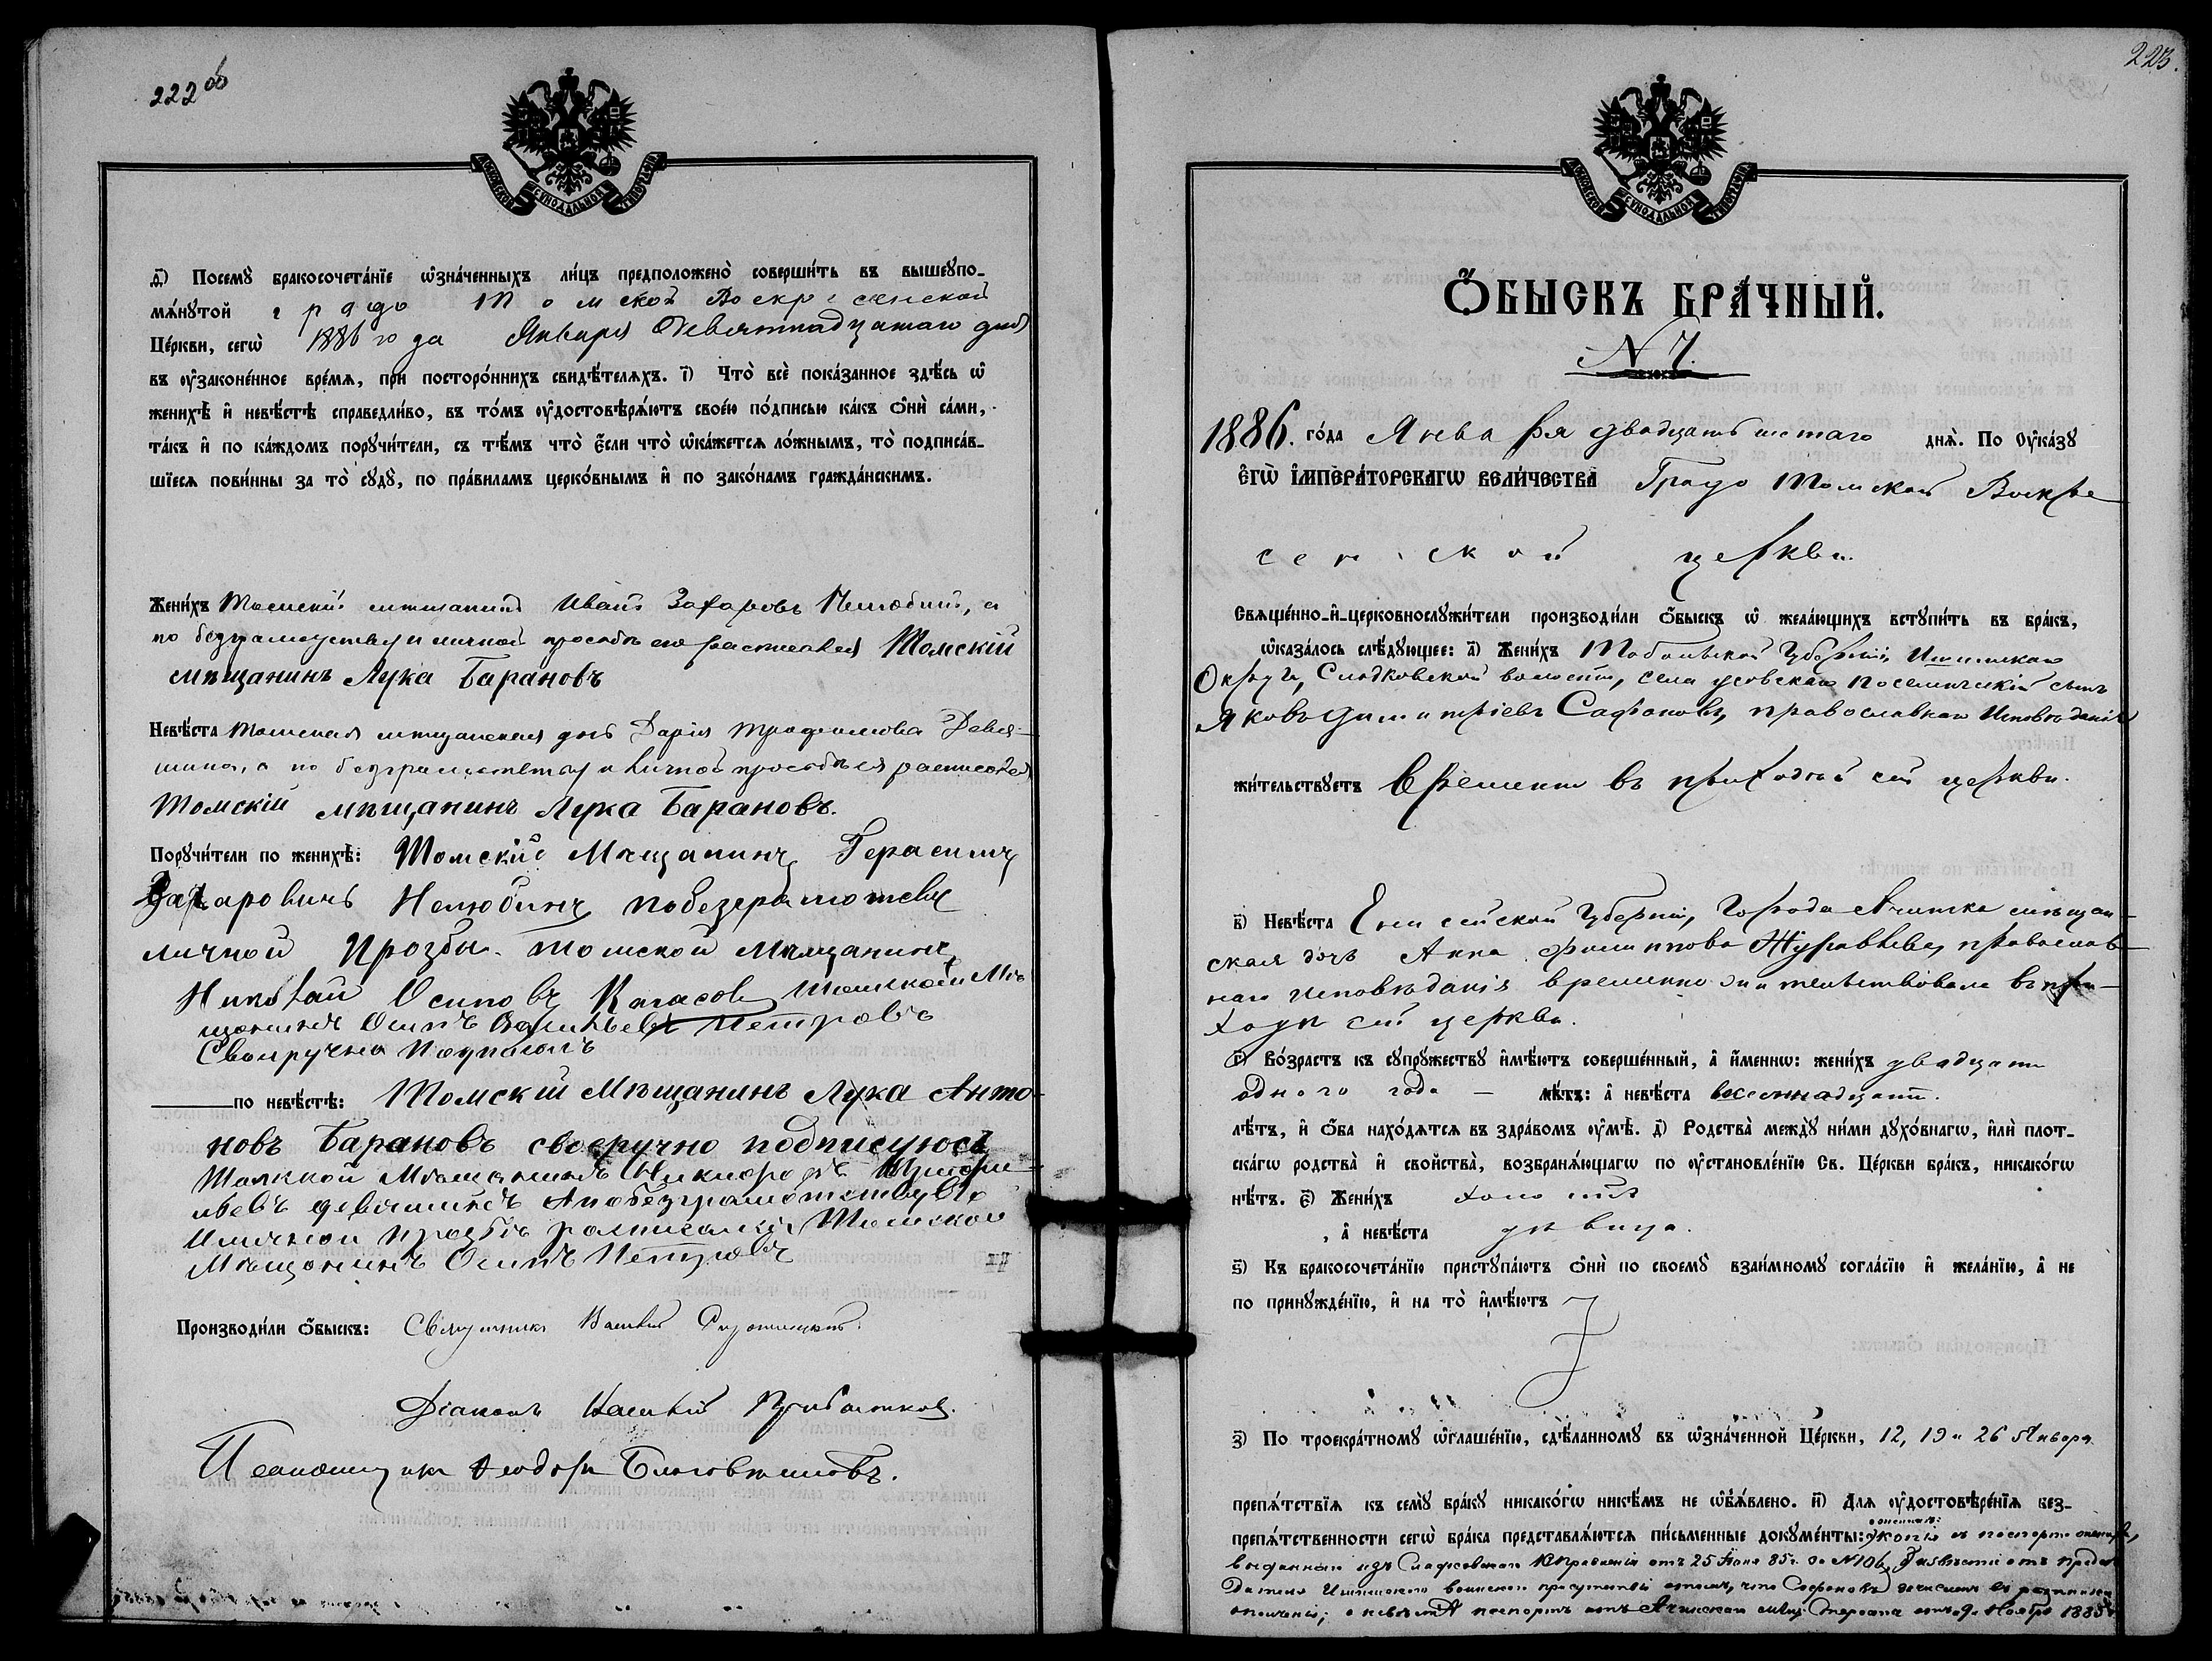 222 об
МОСКОВСКОЙ СѴНОДАЛЬНОЙ ТИПОГРАФІИ
д҃і) Посемꙋ бракосочета́нїе ѡ҆зна́ченныхъ ли́цъ предположено̀ соверши́ть въ вышеꙋпо-
мѧ́нꙋтой градо Томской Воскресенской
Це́ркви, сегѡ̀ 1886 года Января Девятнадцатаго дня
въ ᲂу҆зако́ненное вре́мѧ, при посторо́ннихъ свидѣ́телѧхъ. і҃) Что̀ всѐ пока́занное здѣ́сь ѡ҆
женихѣ̀ и҆ невѣ́стѣ справедли́во, въ то́мъ ᲂу҆достовѣрѧ́ютъ свое́ю по́дписью ка́къ ѻ҆нѝ са́ми,
та́къ и҆ по ка́ждомъ порꙋчи́тели, съ тѣ́мъ что̀ є҆́сли что̀ ѡ҆ка́жетсѧ ло́жнымъ, то̀ подписа́в-
шїесѧ пови́нны за то̀ сꙋдꙋ̀, по пра́виламъ церко́внымъ и҆ по зако́намъ гражда́нскимъ.
Жени́хъ Томскій мѣщанинъ Иванъ Захаровъ Нелюбинъ, а
по безграмотству и личной просьбѣ его росписался Томскій
мѣщанинъ Лука Барановъ
Невѣ́ста Томская мѣщанская дочь Дарія Трофимова Девя-
шина, а по безграмотству и личной просьбѣ ея расписался
Томскій мѣщанинъ Лука Барановъ.
Порꙋчи́тели по женихѣ̀: Томскій Мѣщанинъ Герасимъ
Захаровичъ Нелюбинъ побезграмотству
личной Прозбы Томской Мѣщанинъ
Николай Осиповъ Томской Мѣ
щанинъ Осипъ Васильевъ Петровъ
Своиручно Подписалъ
по невѣ́стѣ: Томскій Мѣщанинъ Лука Анто-
новъ Барановъ своеручно подписуюсь
Томской Мѣщанинъ Никифоръ
девяшинъ Апобезграмотству Его
Иличной прозбѣ росписался Томской
Мѣщанинъ Осипъ Петровъ
Производи́ли ѻ҆́быскъ: Священникъ Василій
Діаконъ Василій
Псаломщикъ Ѳеодоръ Благовѣщенскій.
223.
МОСКОВСКОЙ СѴНОДАЛЬНОЙ ТИПОГРАФІИ
Ѻ҆́БЫСКЪ БРА́ЧНЫЙ.
N 7.
1886. го́да Января двадцать шестаго днѧ̀. По ᲂу҆ка́зꙋ
є҆гѡ̀ і҆мпера́торскагѡ вели́чества Градо Томской Воскре-
сенской церкви
Свѧще́нно-и҆-церковнослꙋжи́тели производи́ли ѻ҆́быскъ ѡ҆ жела́ющихъ встꙋпи́ть въ бра́къ,
ѡ҆каза́лось слѣ́дꙋющее: а҃) Жени́хъ Тобольской Губерніи, Ишимскаго
Округа, Сладковской волости, села Усовскаго поселенческій сынъ
Яковъ Димитріевъ Сафоновъ, православнаго Исповѣданія
жи́тельствꙋетъ Времени въ приходѣ сей церкви.
в҃) Невѣ́ста Енисейской Губерніи, Города Ачинска мѣщан-
ская дочь Анна Филиппова Журавлева, православ-
наго исповѣданія временно жительствовала въ при-
ходѣ сей церкви.
г҃) Во́зрастъ къ сꙋпрꙋ́жествꙋ и҆мѣ́ютъ соверше́нный, а҆ и҆́меннѡ: жени́хъ двадцати
одного года — лѣ́тъ: а҆ невѣ́ста восемнадцати.
лѣ́тъ, и҆ ѻ҆́ба нахо́дѧтсѧ въ здра́вомъ ᲂу҆мѣ̀. д҃) Родства̀ междꙋ̀ ни́ми дꙋхо́внагѡ, и҆лѝ пло́т-
скагѡ родства̀ и҆ сво́йства̀, возбранѧ́ющагѡ по ᲂу҆становле́нїю Св. Це́ркви бра́къ, никако́гѡ
нѣ́тъ. є҃) Жени́хъ холостъ
, а҆ невѣ́ста дѣвица.
ѕ҃) Къ бракосочета́нїю пристꙋпа́ютъ ѻ҆нѝ по своемꙋ̀ взаи́мномꙋ согла́сїю и҆ жела́нїю, а҆ не
по принꙋжде́нїю, и҆ на то̀ и҆мѣ́ютъ
з҃) По троекра́тномꙋ ѡ҆глаше́нїю, сдѣ́ланномꙋ въ ѡ҆зна́ченной Це́ркви, 12, 19 и 26 Января
препѧ́тствїѧ къ семꙋ̀ бра́кꙋ никако́гѡ никѣ́мъ не ѡ҆б̾ѧ́влено. и҃) Для ᲂу҆достовѣре́нїѧ без-
препѧ́тственности сегѡ̀ бра́ка представлѧ́ютсѧ пи́сьменные докꙋме́нты: о женихѣ: копія съ паспорта
выданнаго изъ Сладковскаго В правленія отъ 25 85 г. за №106, отъ предсе-
дателя Ишимскаго воинскаго присутствія отомъ, что Сафоновъ зачисленъ въ
ополченія; о невѣстѣ паспортъ отъ Ачинскаго мѣщ. Старосты отъ 9 Ноября 1885 г.